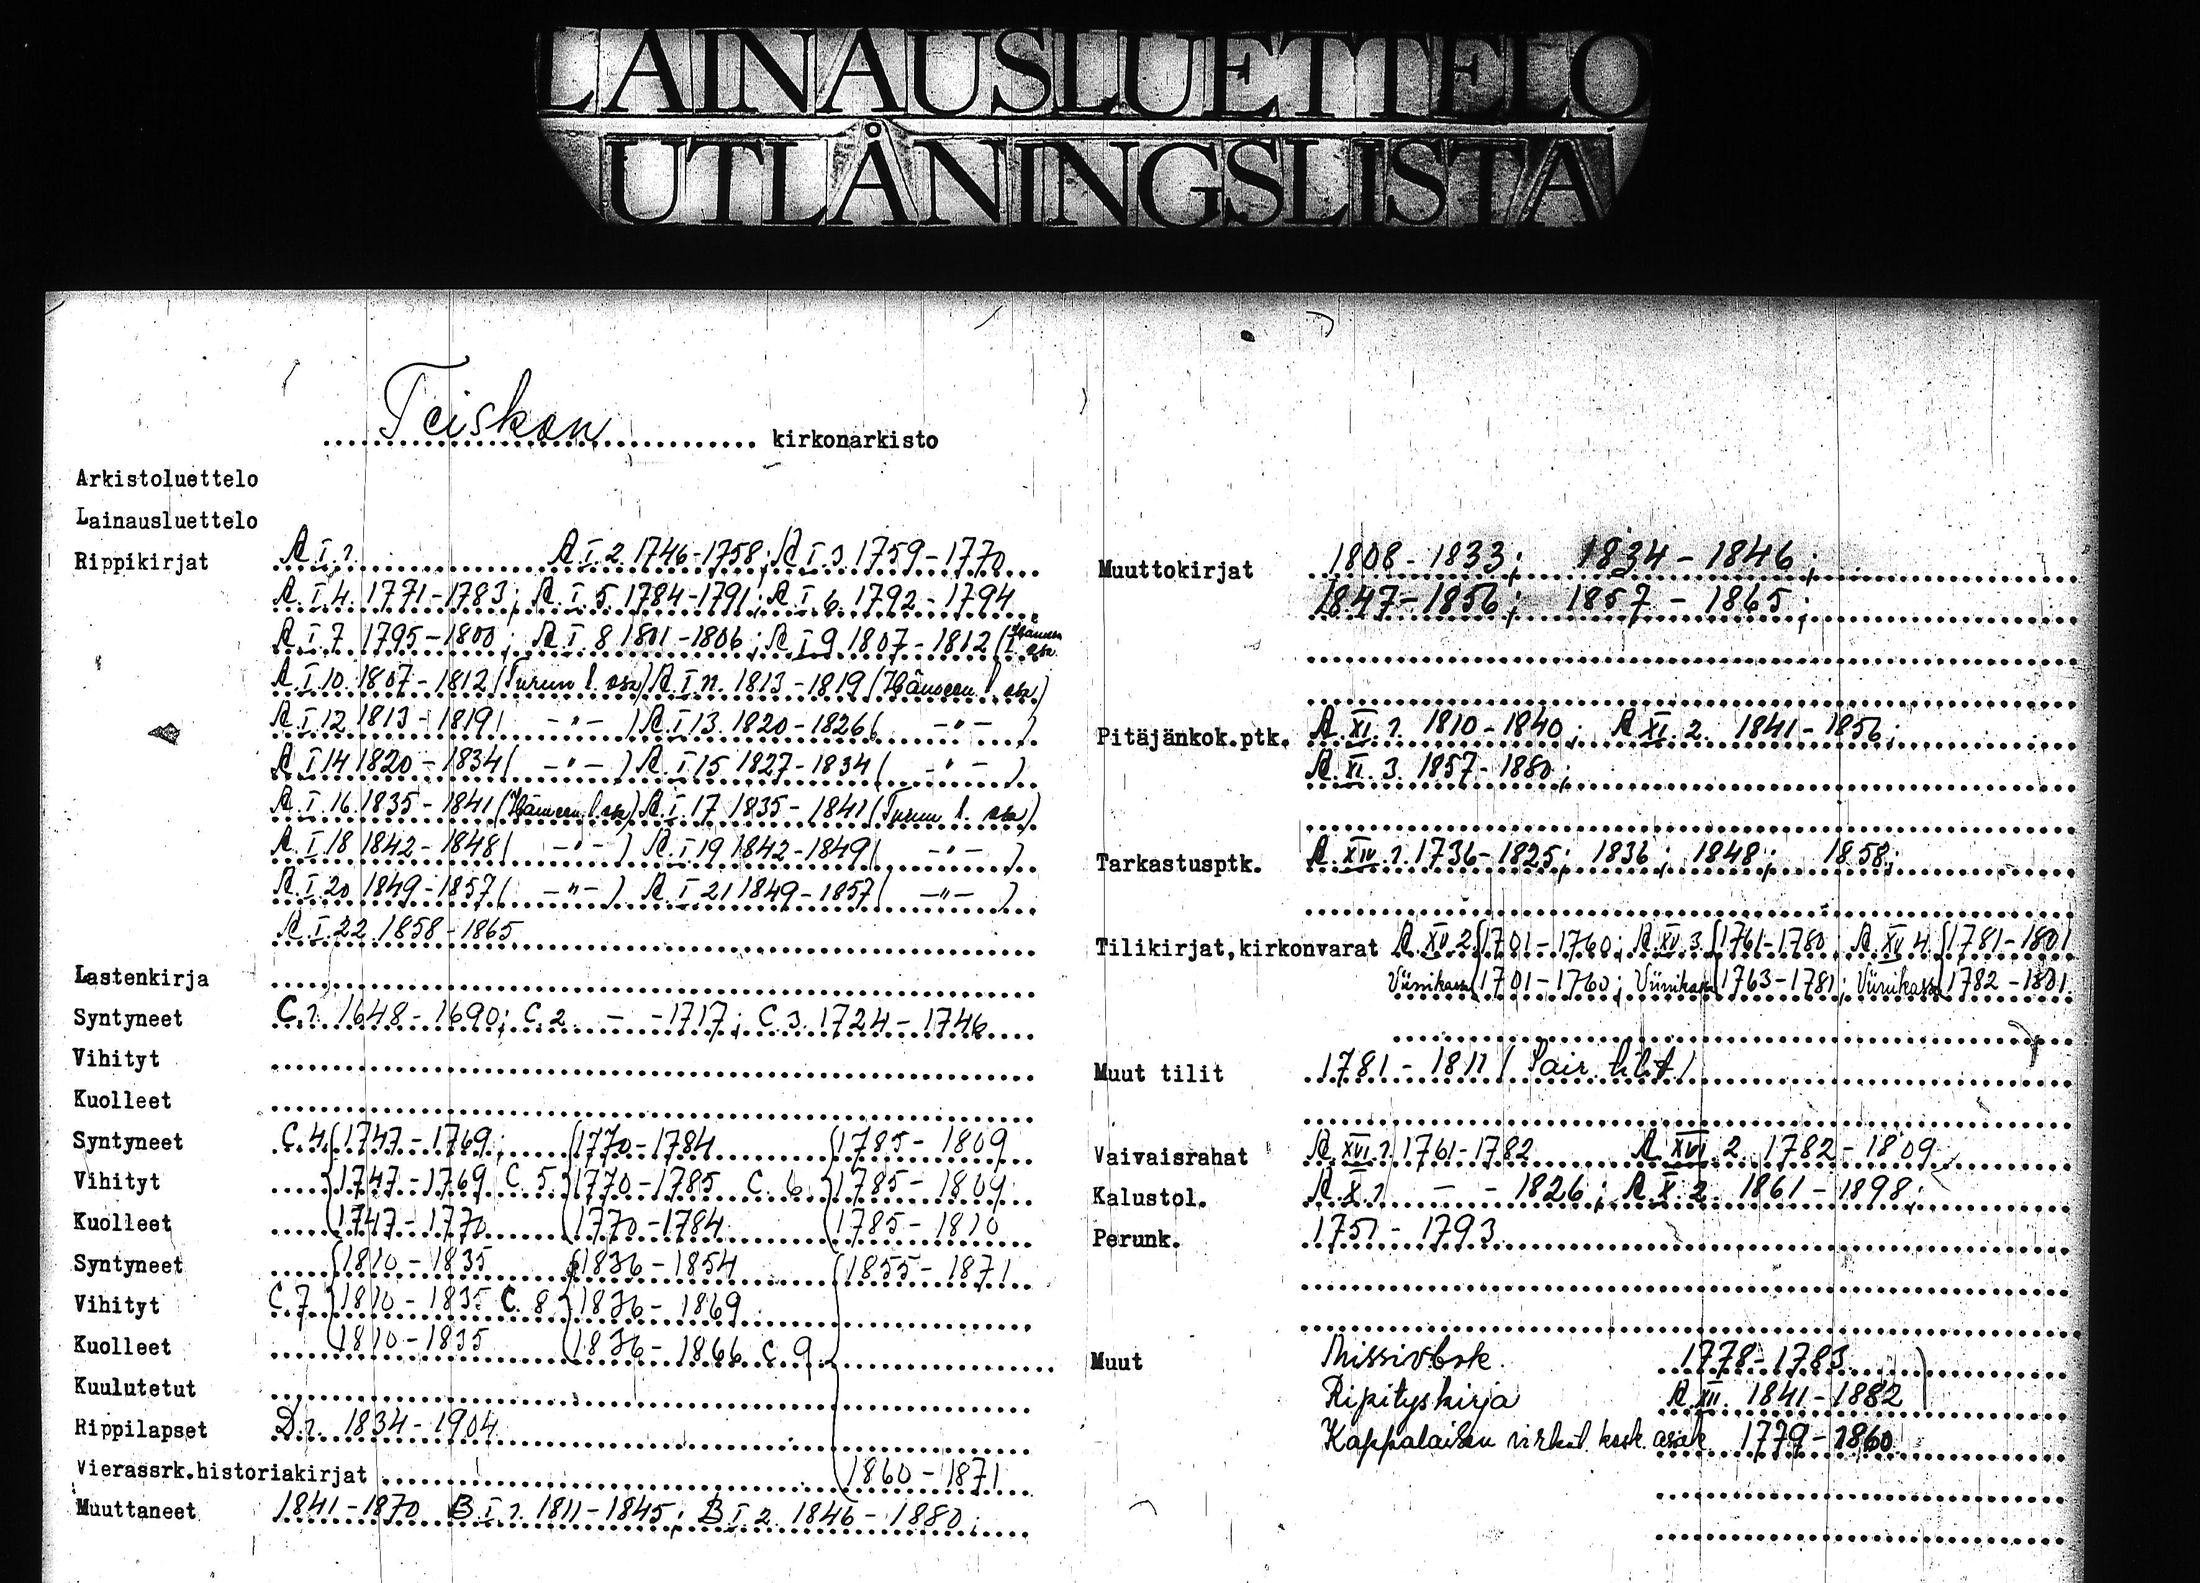 LAINAUSLUETTELO
UTLÅNINGSLISTA
Teiskon kirkonarkisto
Arkistoluettelo
Lainausluettelo
Rippikirjat A I 1 A I 2 1746-1758; A I 3 1759-1770
A I 4 1771-1783; A I 5 1784-1791; A I 6 1792-1794
A I 7 1795-1800; A I 8 1801-1806; A I 9 1807-1812 (Hämeen l. osa
A I 10 1807-1812 (Turun l. osa) A I 11 1813-1819 (Hämeen l. osa)
A I 12 1813-1819 ( -"- ) A I 13 1820-1826 ( -"- )
A I 14 1820-1834 ( -"- ) A I 15 1827-1834 ( -"- )
A I 16 1835-1841 (Hämeen l. osa) A I 17 1835-1841 (Turun l. osa)
A I 18 1842-1848 ( -"- ) A I 19 1842-1849 ( -"- )
A I 20 1849-1857 ( -"- ) A I 21 1849-1857 ( -"- )
A I 22 1858-1865
Lastenkirja
Syntyneet C 1 1648-1690; C 2 - -1717; C 3 1724-1746
Vihityt
Kuolleet
Syntyneet C 4 1747-1769; 1770-1784 1785-1809
Vihityt 1747-1769 C 5 1770-1785 C 6 1785-1809
Kuolleet 1747-1770 1770-1784 1785-1810
Syntyneet 1810-1835 1836-1854 1855-1871
Vihityt C 7 1810-1835 C 8 1836-1869
Kuolleet 1810-1835 1836-1866 C 9
Kuulutetut
Rippilapset D 1 1834-1904
Vierassrk.historiakirjat 1860-1871
Muuttaneet 1841-1870 B I 1 1811-1845; B I 2 1846-1880;
Muuttokirjat 1808-1833; 1834-1846;
1847-1856; 1857-1865;
Pitäjänkok.ptk. A XI 1 1810-1840; A XI 2 1841-1856;
A XI 3 1857-1880;
Tarkastusptk. A XIV 1 1736-1825; 1836; 1848; 1858;
Tilikirjat, kirkonvarat A XV 2 1701-1760; A XV 3 1761-1780; A XV 4 1781-1801
Viinikassa 1701-1760; Viinikassa 1763-1781; Viinikassa 1782-1801
Muut tilit 1781-1811 (Sair. tilit)
Vaivaisrahat A XVI 1 1761-1782 A XVI 2 1782-1809
Kalustol. A X 1 - - 1826; A X 2 1861-1898;
Perunk. 1751-1793
Muut Missivbok. 1778-1783
Ripityskirja A XII 1841-1882
Kappalaisen virkat. kosk. asiak. 1779-1860